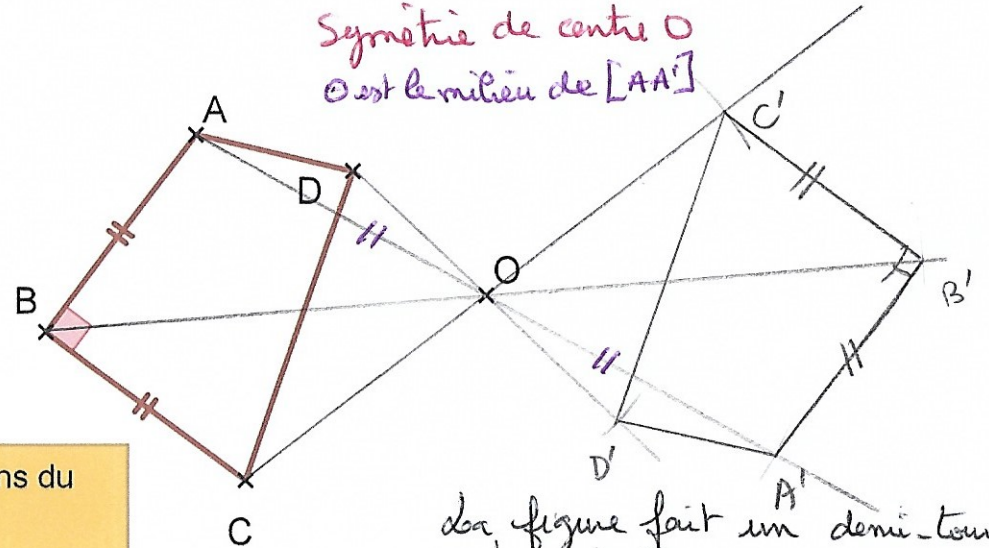 Symétrie de centre O
O est le milieu de [AA']
A
C'
D
O
B
B'
D'
A'
ns du
C
La figure fait un demi-tour